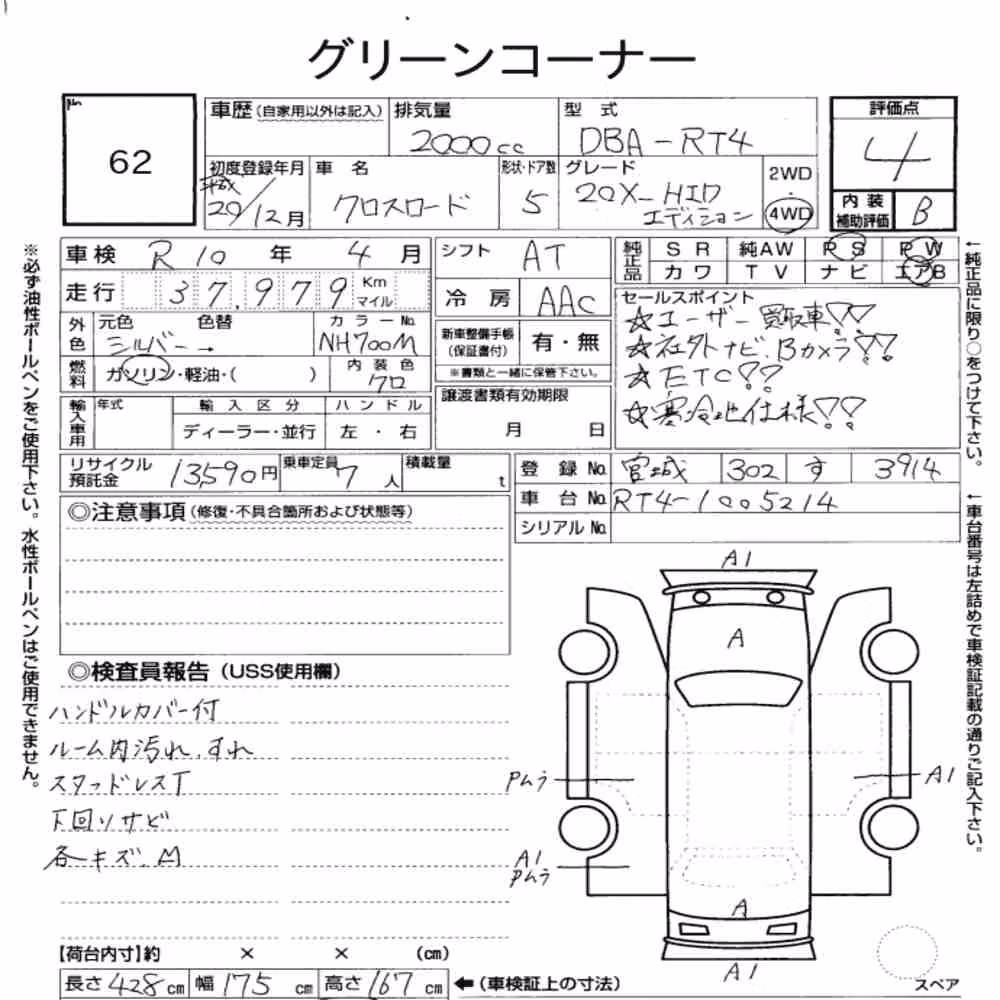 グリーンコーナー
62
車歴 (自家用以外は記入)
排気量
2000cc
型式
DBA-RT4
評価点
4
初度登録年月
平成
20/12月
車名
クロスロード
形状・ドア数
5
グレード
20X-HID
エディション
2WD
・
4WD
内装
補助評価
B
車検 R10年 4月
シフト AT
純正品
SR 純AW PS PW
カワ TV ナビ エアB
走行 37,979 Km
マイル
冷房 AAC
セールスポイント
☆ユーザー買取車!!
☆社外ナビ.Bカメラ!!
☆ETC!!
☆寒冷地仕様!!
外色
元色 色替
シルバー→
カラーNo.
NH700M
新車整備手帳
(保証書付)
有・無
※書類と一緒に保管下さい。
燃料
ガソリン・軽油・( )
内装色
クロ
譲渡書類有効期限
月 日
輸入車用
年式
輸入区分
ディーラー・並行
ハンドル
左・右
リサイクル
預託金
13,590円
乗車定員
7人
積載量
t
登録No. 宮城 302 す 3914
車台No. RT4-1005214
シリアルNo.
◎注意事項(修復・不具合箇所および状態等)
◎検査員報告(USS使用欄)
ハンドルカバー付
ルーム内汚れ.すれ
スタッドレスT
下回りサビ
各キズ.M
A1
A
Pムラ
A1
A1
Pムラ
A
A1
スペア
【荷台内寸】約 × × (cm)
長さ428cm 幅175cm 高さ167cm ←(車検証上の寸法)
※必ず油性ボールペンをご使用下さい。水性ボールペンはご使用できません。
←純正品に限り○をつけて下さい。
←車台番号は左詰めで車検証記載の通りご記入下さい。